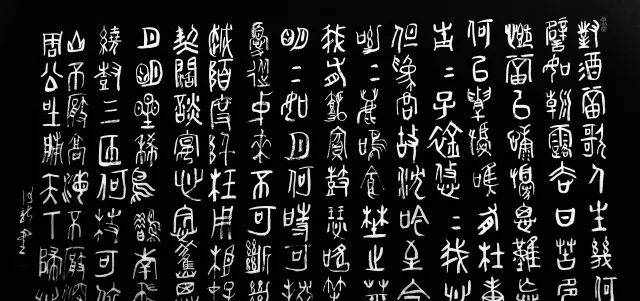 對酒當歌人生幾何
譬如朝露去日苦多
慨當以慷憂思難忘
何以解憂唯有杜康
青〻子衿悠〻我心
但為君故沈吟至今
呦〻鹿鳴食野之苹
我有嘉賓鼓瑟吹笙
明〻如月何時可掇
憂從中來不可斷絕
越陌度阡枉用相存
契闊談讌心念舊恩
月明星稀烏鵲南飛
繞樹三匝何枝可依
山不厭高海不厭深
周公吐哺天下歸心